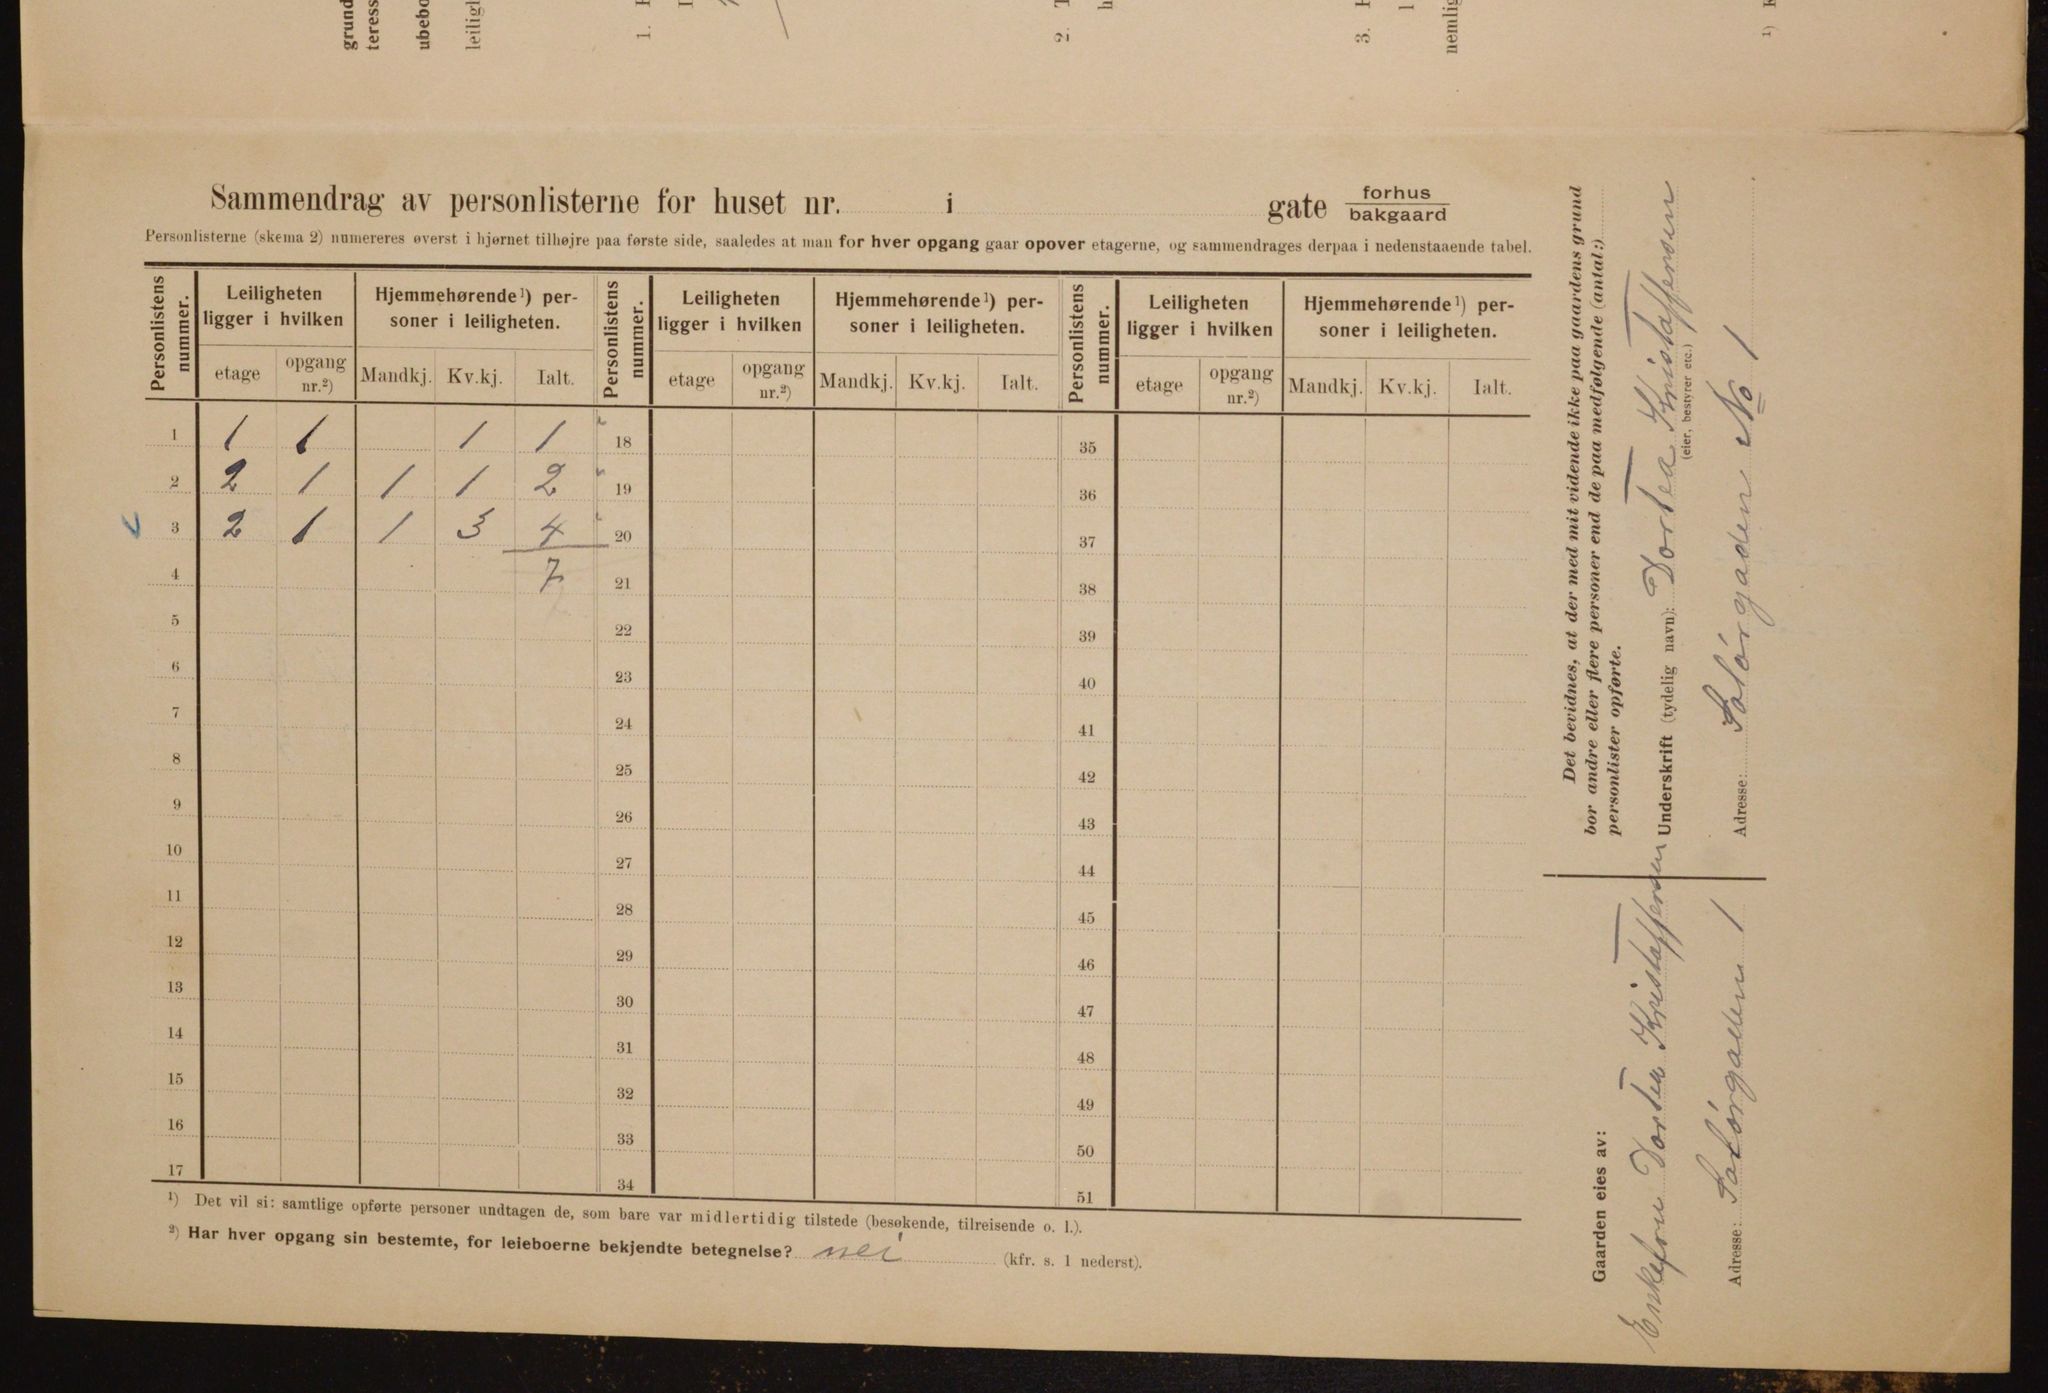 grund
teress
ubebo
leiligh
1.
2.
3.
nemlig
¹)
Sammendrag av personlisterne for huset nr. i gate forhus
bakgaard
Personlisterne (skema 2) numereres øverst i hjørnet tilhøjre paa første side, saaledes at man for hver opgang gaar opover etagerne, og sammendrages derpaa i nedenstaaende tabel.
Personlistens nummer. Leiligheten ligger i hvilken Hjemmehørende¹) personer i leiligheten. Personlistens nummer. Leiligheten ligger i hvilken Hjemmehørende¹) personer i leiligheten. Personlistens nummer. Leiligheten ligger i hvilken Hjemmehørende¹) personer i leiligheten.
etage opgang nr.²) Mandkj. Kv.kj. Ialt. etage opgang nr.²) Mandkj. Kv.kj. Ialt. etage opgang nr.²) Mandkj. Kv.kj. Ialt.
1 1 1 1 1 18 35
2 2 1 1 1 2 19 36
3 2 1 1 3 4 20 37
4 7 21 38
5 22 39
6 23 40
7 24 41
8 25 42
9 26 43
10 27 44
11 28 45
12 29 46
13 30 47
14 31 48
15 32 49
16 33 50
17 34 51
¹) Det vil si: samtlige opførte personer undtagen de, som bare var midlertidig tilstede (besøkende, tilreisende o. l.).
²) Har hver opgang sin bestemte, for leieboerne bekjendte betegnelse? nei (kfr. s. 1 nederst).
Det bevidnes, at der med mit vidende ikke paa gaardens grund
bor andre eller flere personer end de paa medfølgende (antal:)
personlister opførte.
Underskrift (tydelig navn): Dortea Kristaffersen
(eier, bestyrer etc.)
Adresse: Solørgaden No 1
Gaarden eies av:
Enkefru Dortea Kristaffersen
Adresse: Solørgaden 1